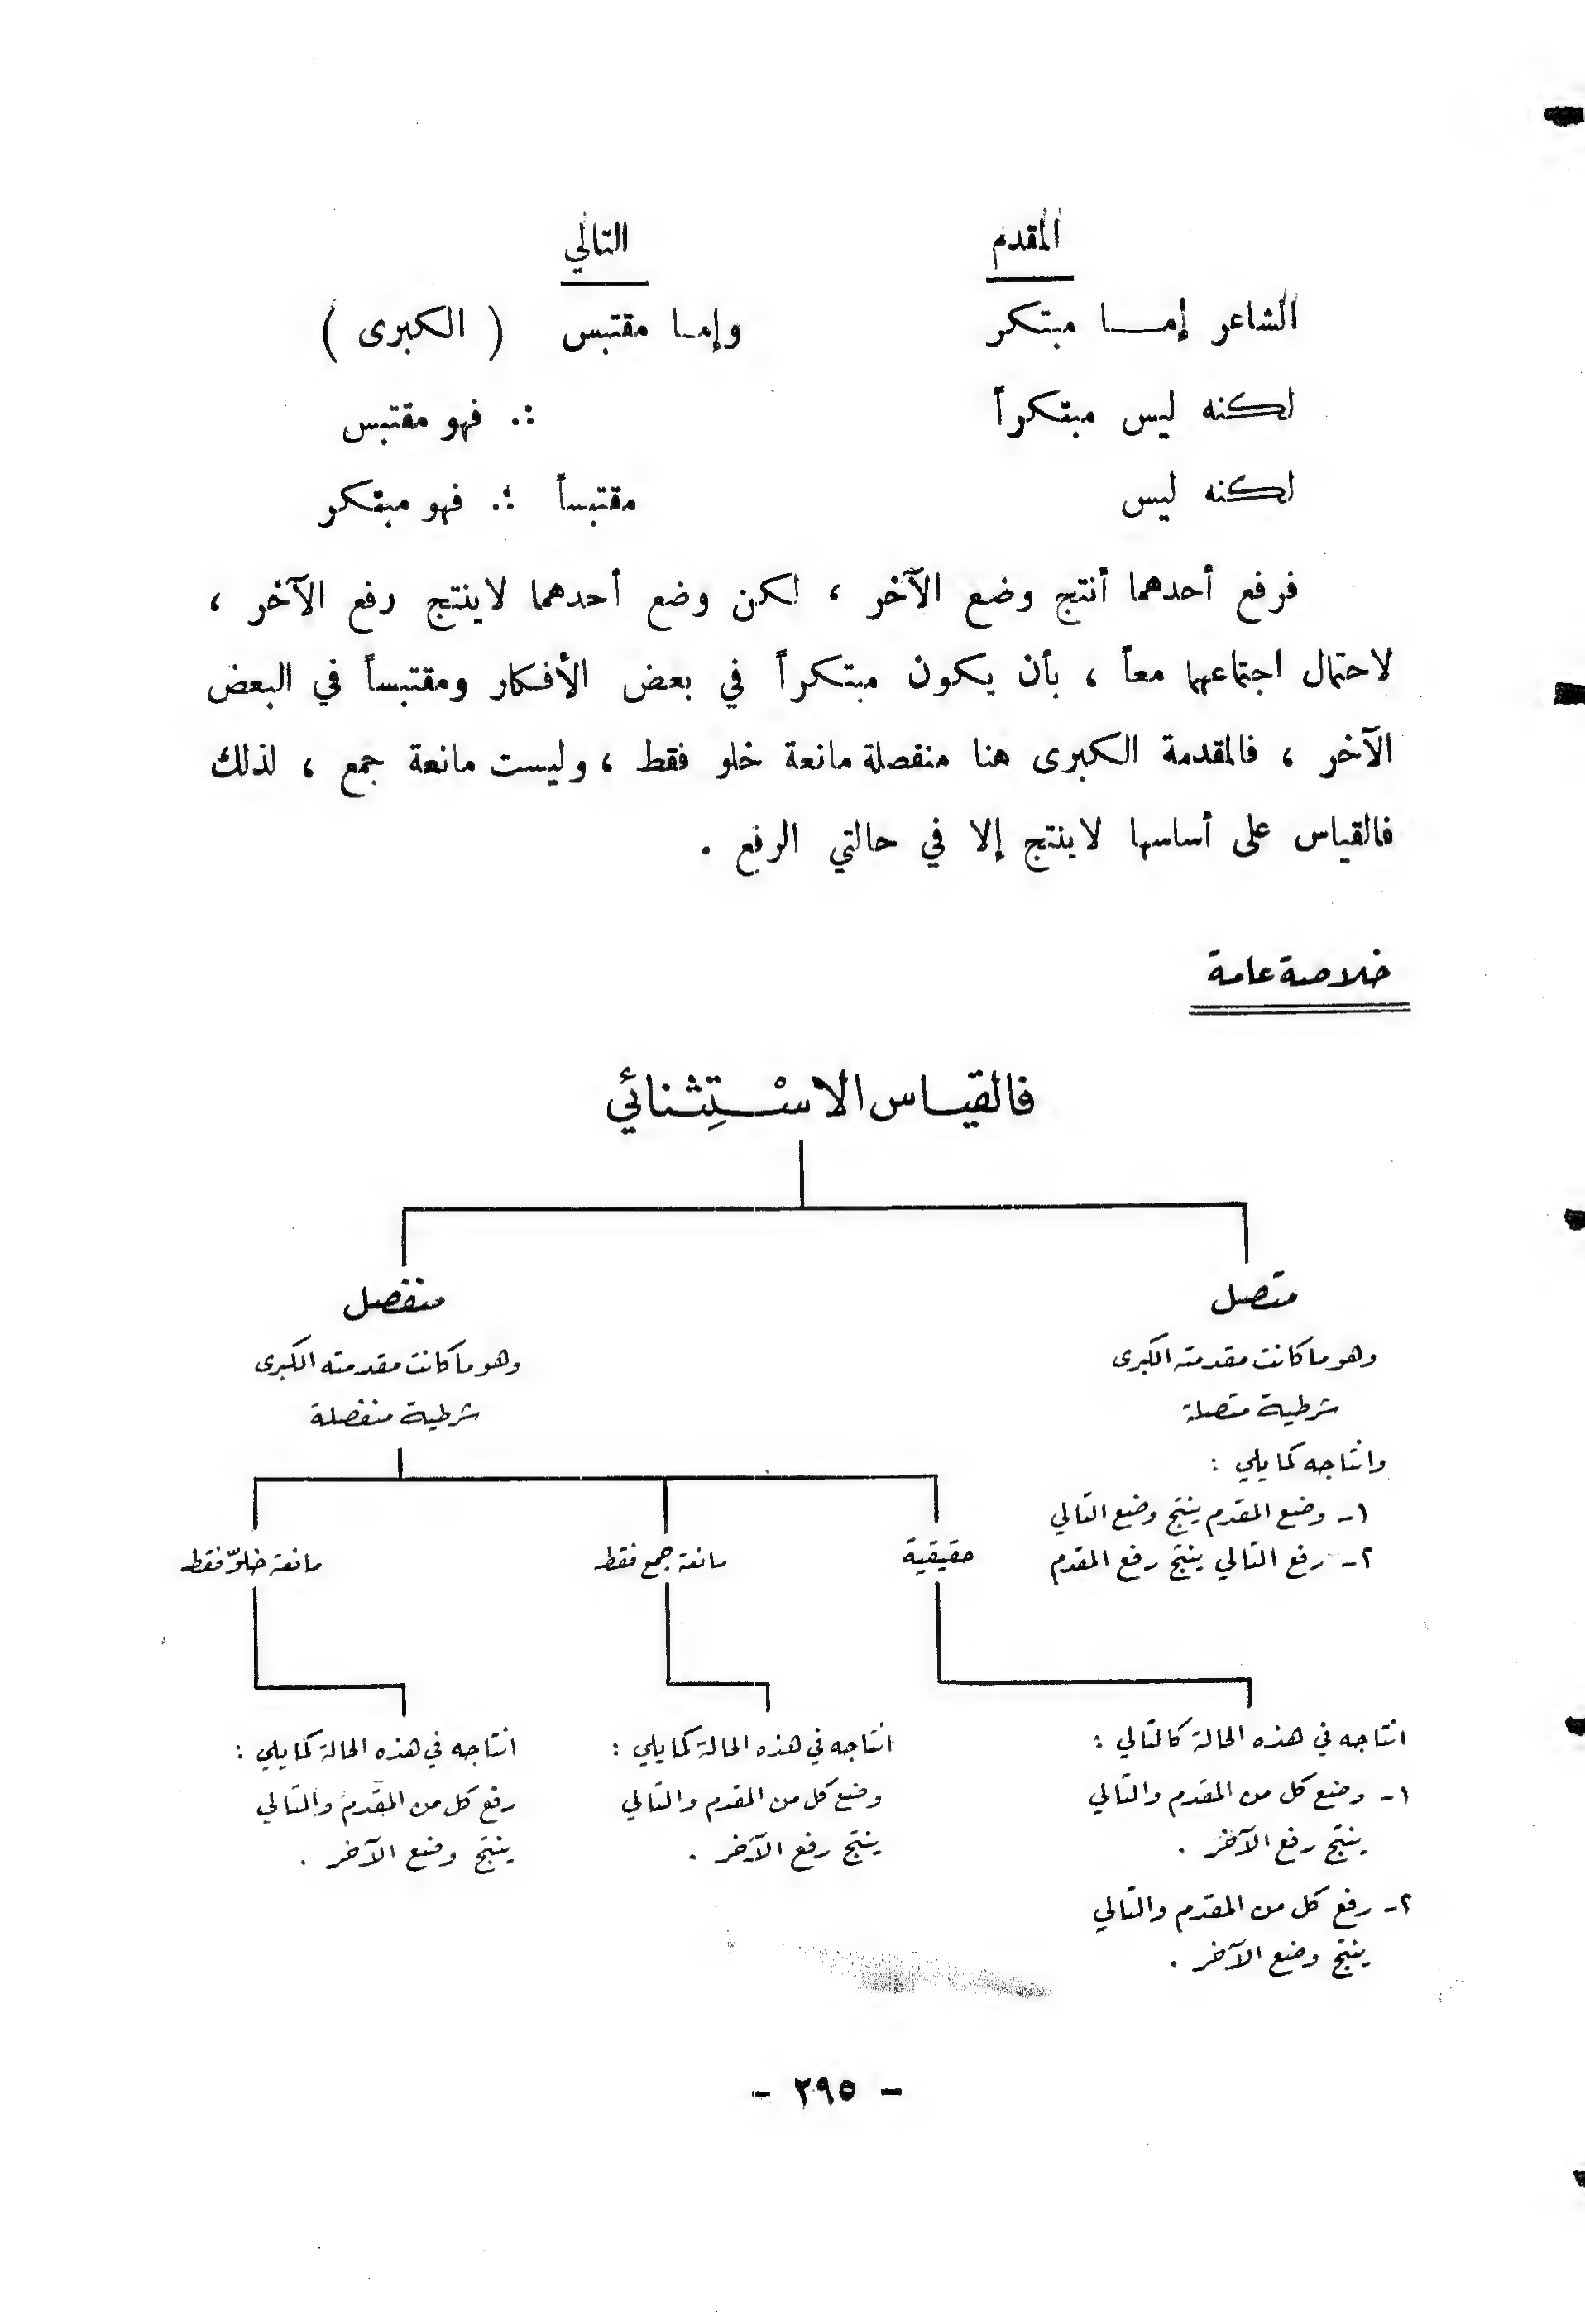 المقدم التالي
الشاعر إمــا مبتكر وإمـا مقتبس ( الكبرى )
لكنه ليس مبتكراً ∴ فهو مقتبس
لكنه ليس مقتبساً ∴ فهو مبتكر
فرفع أحدهما أنتج وضع الآخر ، لكن وضع أحدهما لاينتج رفع الآخر ،
لاحتمال اجتماعهما معاً ، بأن يكون مبتكراً في بعض الأفكار ومقتبساً في البعض
الآخر ، فالمقدمة الكبرى هنا منفصلة مانعة خلو فقط ، وليست مانعة جمع ، لذلك
فالقياس على أساسها لاينتج إلا في حالتي الرفع .
خلاصة عامة
فالقيـاس الاسْـتِـثـنائي
متصل
وهو ما كانت مقدمته الكبرى
شرطية متصلة
وانتاجه كما يلي :
١ـ وضع المقدم ينتج وضع التالي
٢ـ رفع التالي ينتج رفع المقدم
منفصل
وهو ما كانت مقدمته الكبرى
شرطية منفصلة
حقيقية
انتاجه في هذه الحالة كالتالي :
١ـ وضع كل من المقدم والتالي
ينتج رفع الآخر .
٢ـ رفع كل من المقدم والتالي
ينتج وضع الآخر .
مانعة جمع فقط
انتاجه في هذه الحالة كما يلي :
وضع كل من المقدم والتالي
ينتج رفع الآخر .
مانعة خلوّ فقط
انتاجه في هذه الحالة كما يلي :
رفع كل من المقدم والتالي
ينتج وضع الآخر .
- ٢٩٥ -